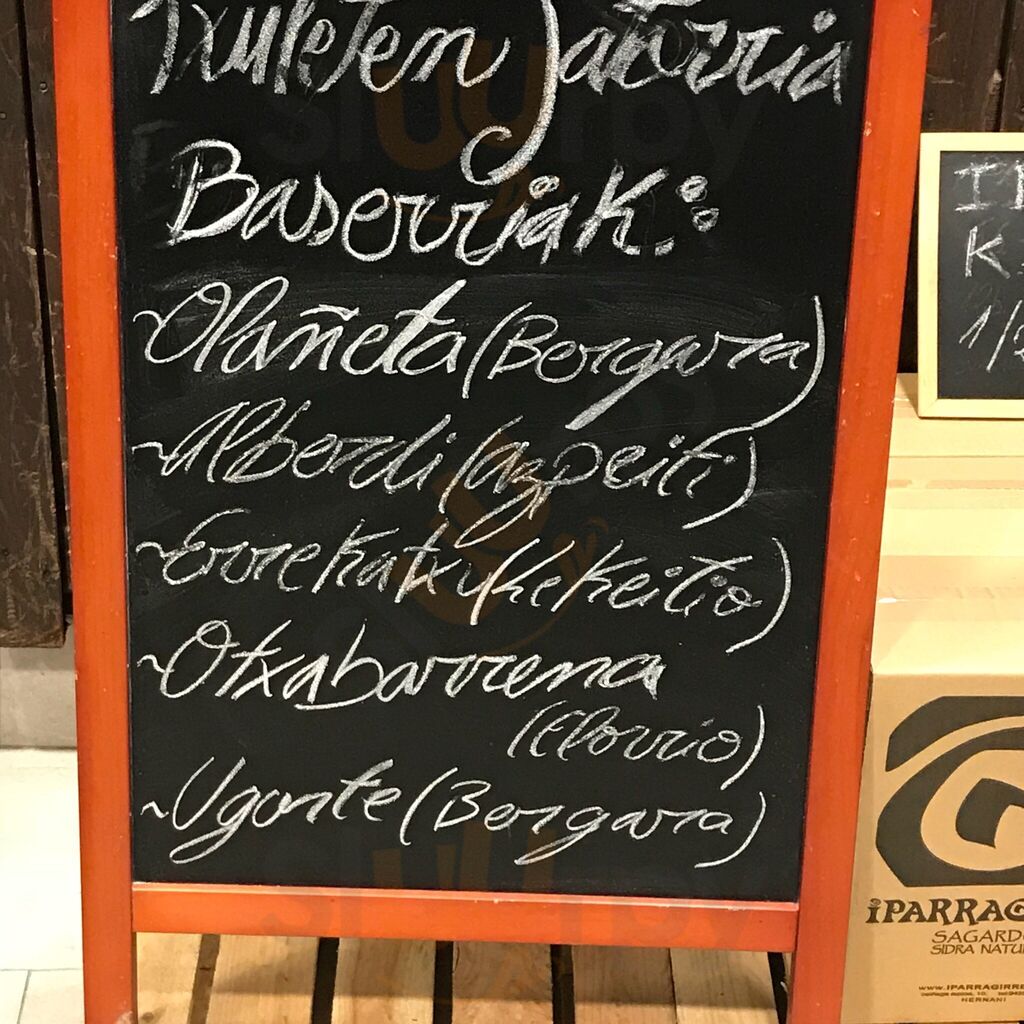 Txuleten Jatorria
Baserriak:
~Olañeta (Bergara)
~Alberdi (Azpeiti)
~Errekatxu (Kekeitio)
~Otxabarrena
(Elorrio)
~Ugarte (Bergara)
K
1/2
iPARRAG
SAGARD
SIDRA NATU
www.IPARRAGIRRE
HERNANI